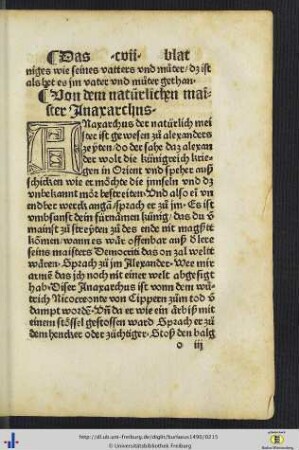 Das cvii blat
niges wie seines vatters vnd můter/ dz ist
als het es jm vater vnd můter gethan.
Von dem natürlichen mai-
ster Inaxarchus.
ANaxarchus der natürlich mei
ster ist gewesen zů alexanders
zeyten/ do der sahe daz alexan
der wolt die künigreich krie-
gen in Orient vnd speher auß
schicken wie er möchte die jnnseln vnd dz
vnbekannt mör bestreiten. Vnd also er vn
end ber werck angañ/ sprach er zů jm. Es ist
vmbsunst dein fürnämen künig/ das du v
mainst zů streyten zů des ende nit magstt
kömen/ wann es wär offenbar auß d lere
seins maisters Democriti das on zal weltt
wären. Sprach zů jm Alexander. Wee mir
armē das jch noch nit einer welt abgesigt
hab. Diser Inaxarchus ist vonn dem wü-
trich Nicocreonte von Cippern zům tod v
dampt wordē. Vñ da er wie ein ärbiß mit
einem stössel gestossen ward Sprach er zů
dem hencker oder züchtiger. Stoß den balg
o iij
http://dl.ub.uni-freiburg.de/diglit/burlaeus1490/0215
© Universitätsbibliothek Freiburg